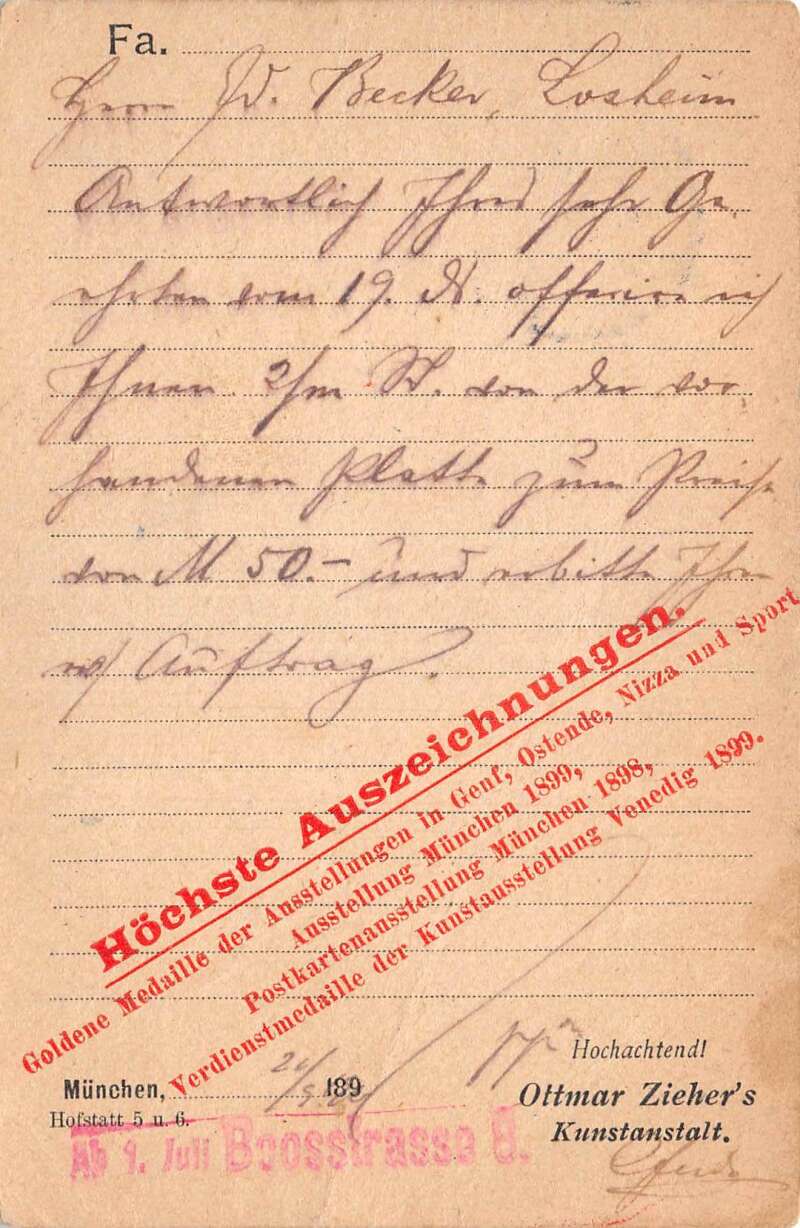 Fa.
Herrn Ed. Becker, Losheim
Antwortlich Ihres sehr Ge-
ehrten vom 19. ds. offerire ich
Ihnen 2/m St. von der vor-
handenen Platte zum Preise
von M 50.- und erbitte Ihren
w/ Auftrag.
Höchste Auszeichnungen.
Goldene Medaille der Ausstellungen in Genf, Ostende, Nizza und Sport
Ausstellung München 1899,
Postkartenausstellung München 1898,
Verdienstmedaille der Kunstausstellung Venedig 1899.
Hochachtend!
München, 189
Ottmar Zieher's
Hofstatt 5 u. 6.
Kunstanstalt.
Ab 1. Juli Boosstrasse 8.